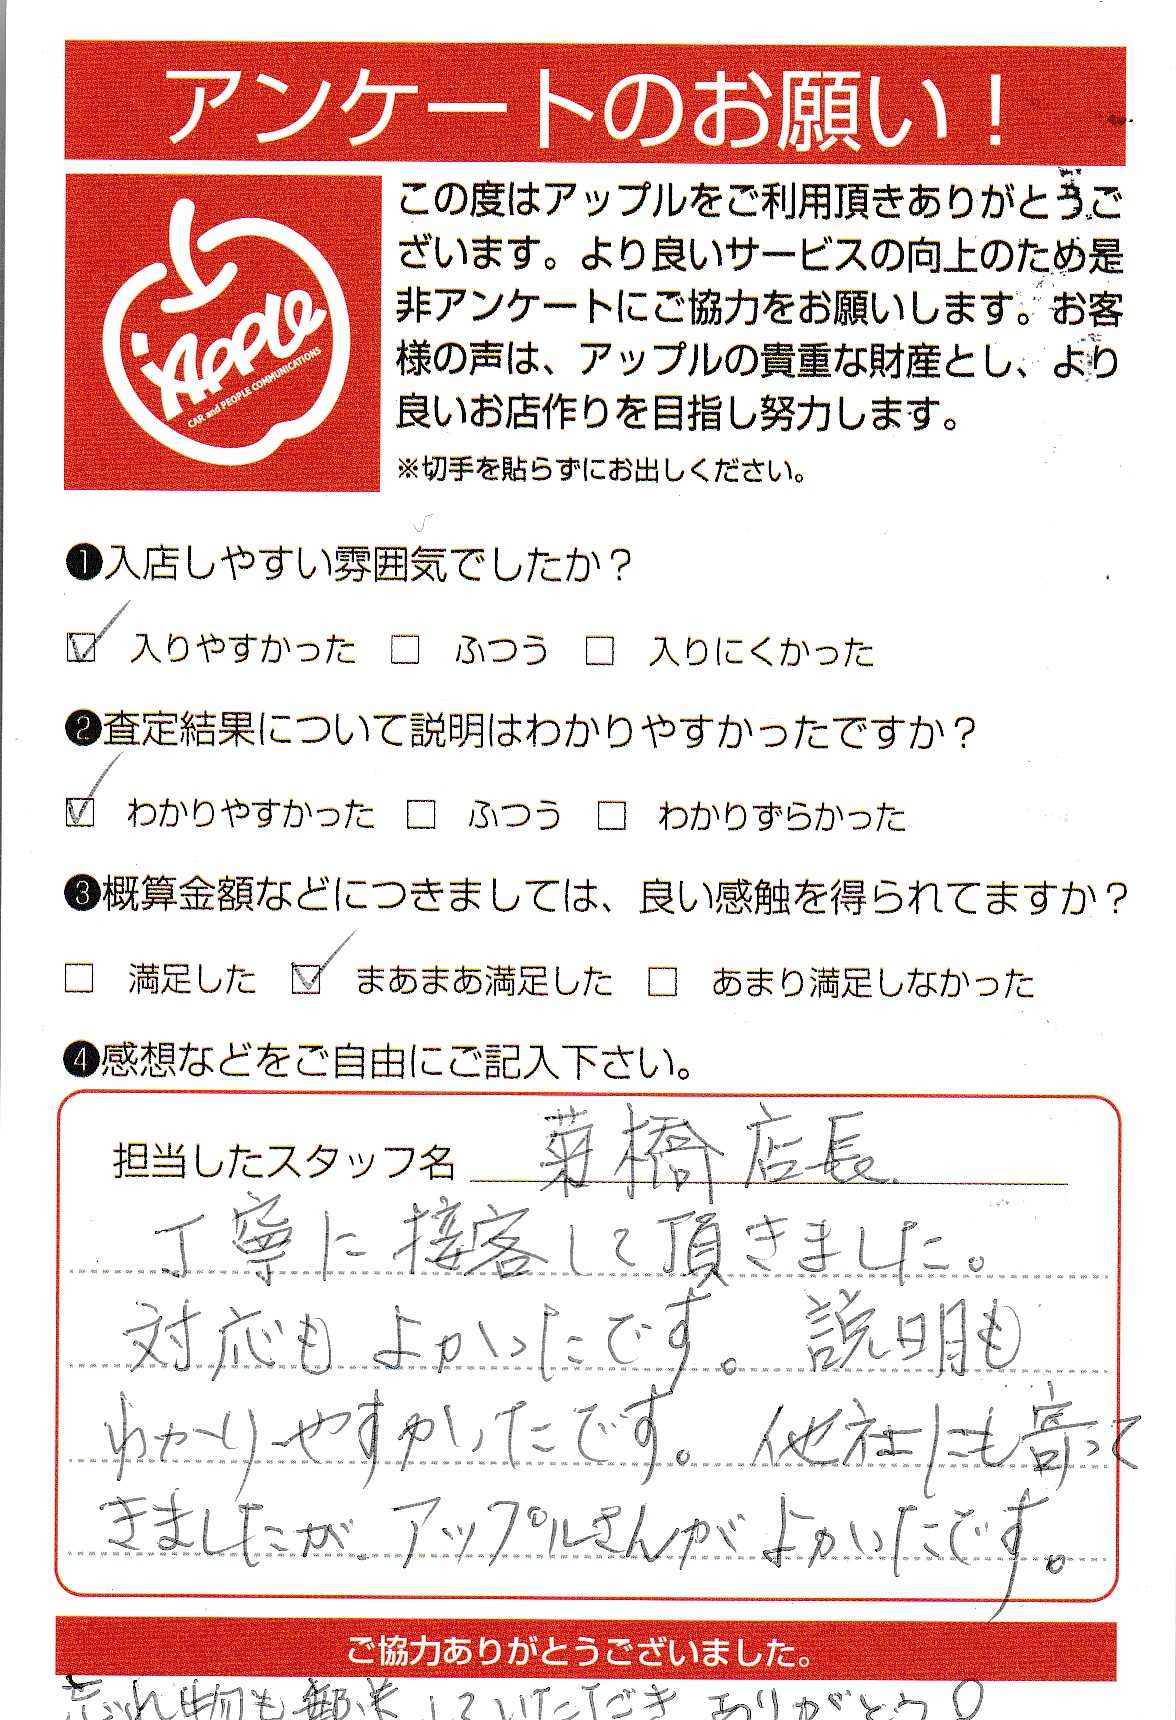 アンケートのお願い!
Apple
CAR and PEOPLE COMMUNICATIONS
この度はアップルをご利用頂きありがとうご
ざいます。より良いサービスの向上のため是
非アンケートにご協力をお願いします。お客
様の声は、アップルの貴重な財産とし、より
良いお店作りを目指し努力します。
※切手を貼らずにお出しください。
❶入店しやすい雰囲気でしたか?
☑ 入りやすかった □ ふつう □ 入りにくかった
❷査定結果について説明はわかりやすかったですか?
☑ わかりやすかった □ ふつう □ わかりずらかった
❸概算金額などにつきましては、良い感触を得られてますか?
□ 満足した ☑ まあまあ満足した □ あまり満足しなかった
❹感想などをご自由にご記入下さい。
担当したスタッフ名 菊橋店長
丁寧に接客して頂きました。
対応もよかったです。説明も
わかりやすかったです。他社にも寄って
きましたが、アップルさんがよかったです。
ご協力ありがとうございました。
忘れ物も郵送していただきありがとう